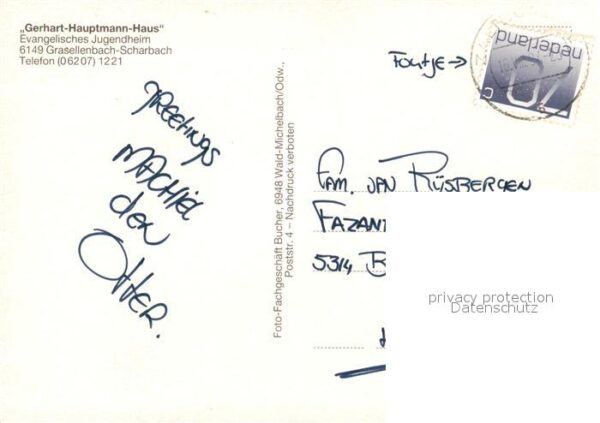 „Gerhart-Hauptmann-Haus"
Evangelisches Jugendheim
6149 Grasellenbach-Scharbach
Telefon (06207) 1221
GREETINGS
MACHIEL
den
OTTER.
Foto-Fachgeschäft Bucher, 6948 Wald-Michelbach/Odw.,
Poststr. 4 – Nachdruck verboten
Foutje →
nederland
70
c
FAM. VAN RÜSBERGEN
FAZANT
5314 B
privacy protection
Datenschutz